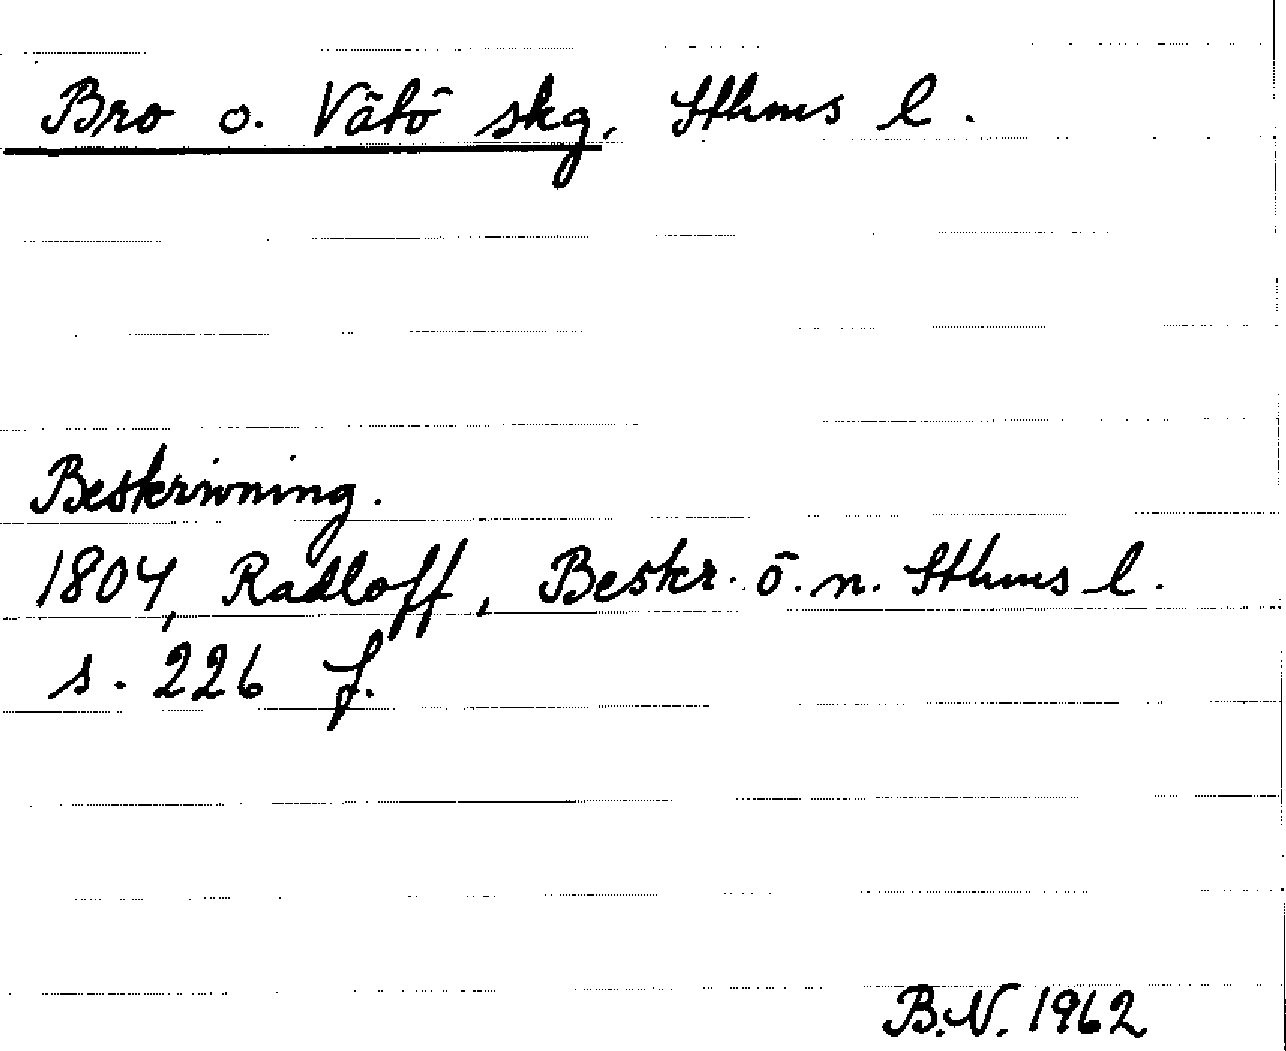 Bro o. Vätö skg, Sthms l.
Beskrivning.
1804, Radloff, Beskr. ö. n. Sthms l.
s. 226 f.
B.N. 1962